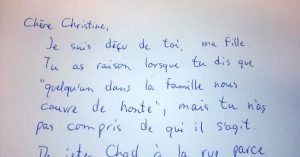 Chère Christine,
Je suis déçu de toi, ma fille.
Tu as raison lorsque tu dis que
"quelqu'un dans la famille nous
couvre de honte", mais tu n'as
pas compris de qui il s'agit.
De jeter Chad à la rue parce